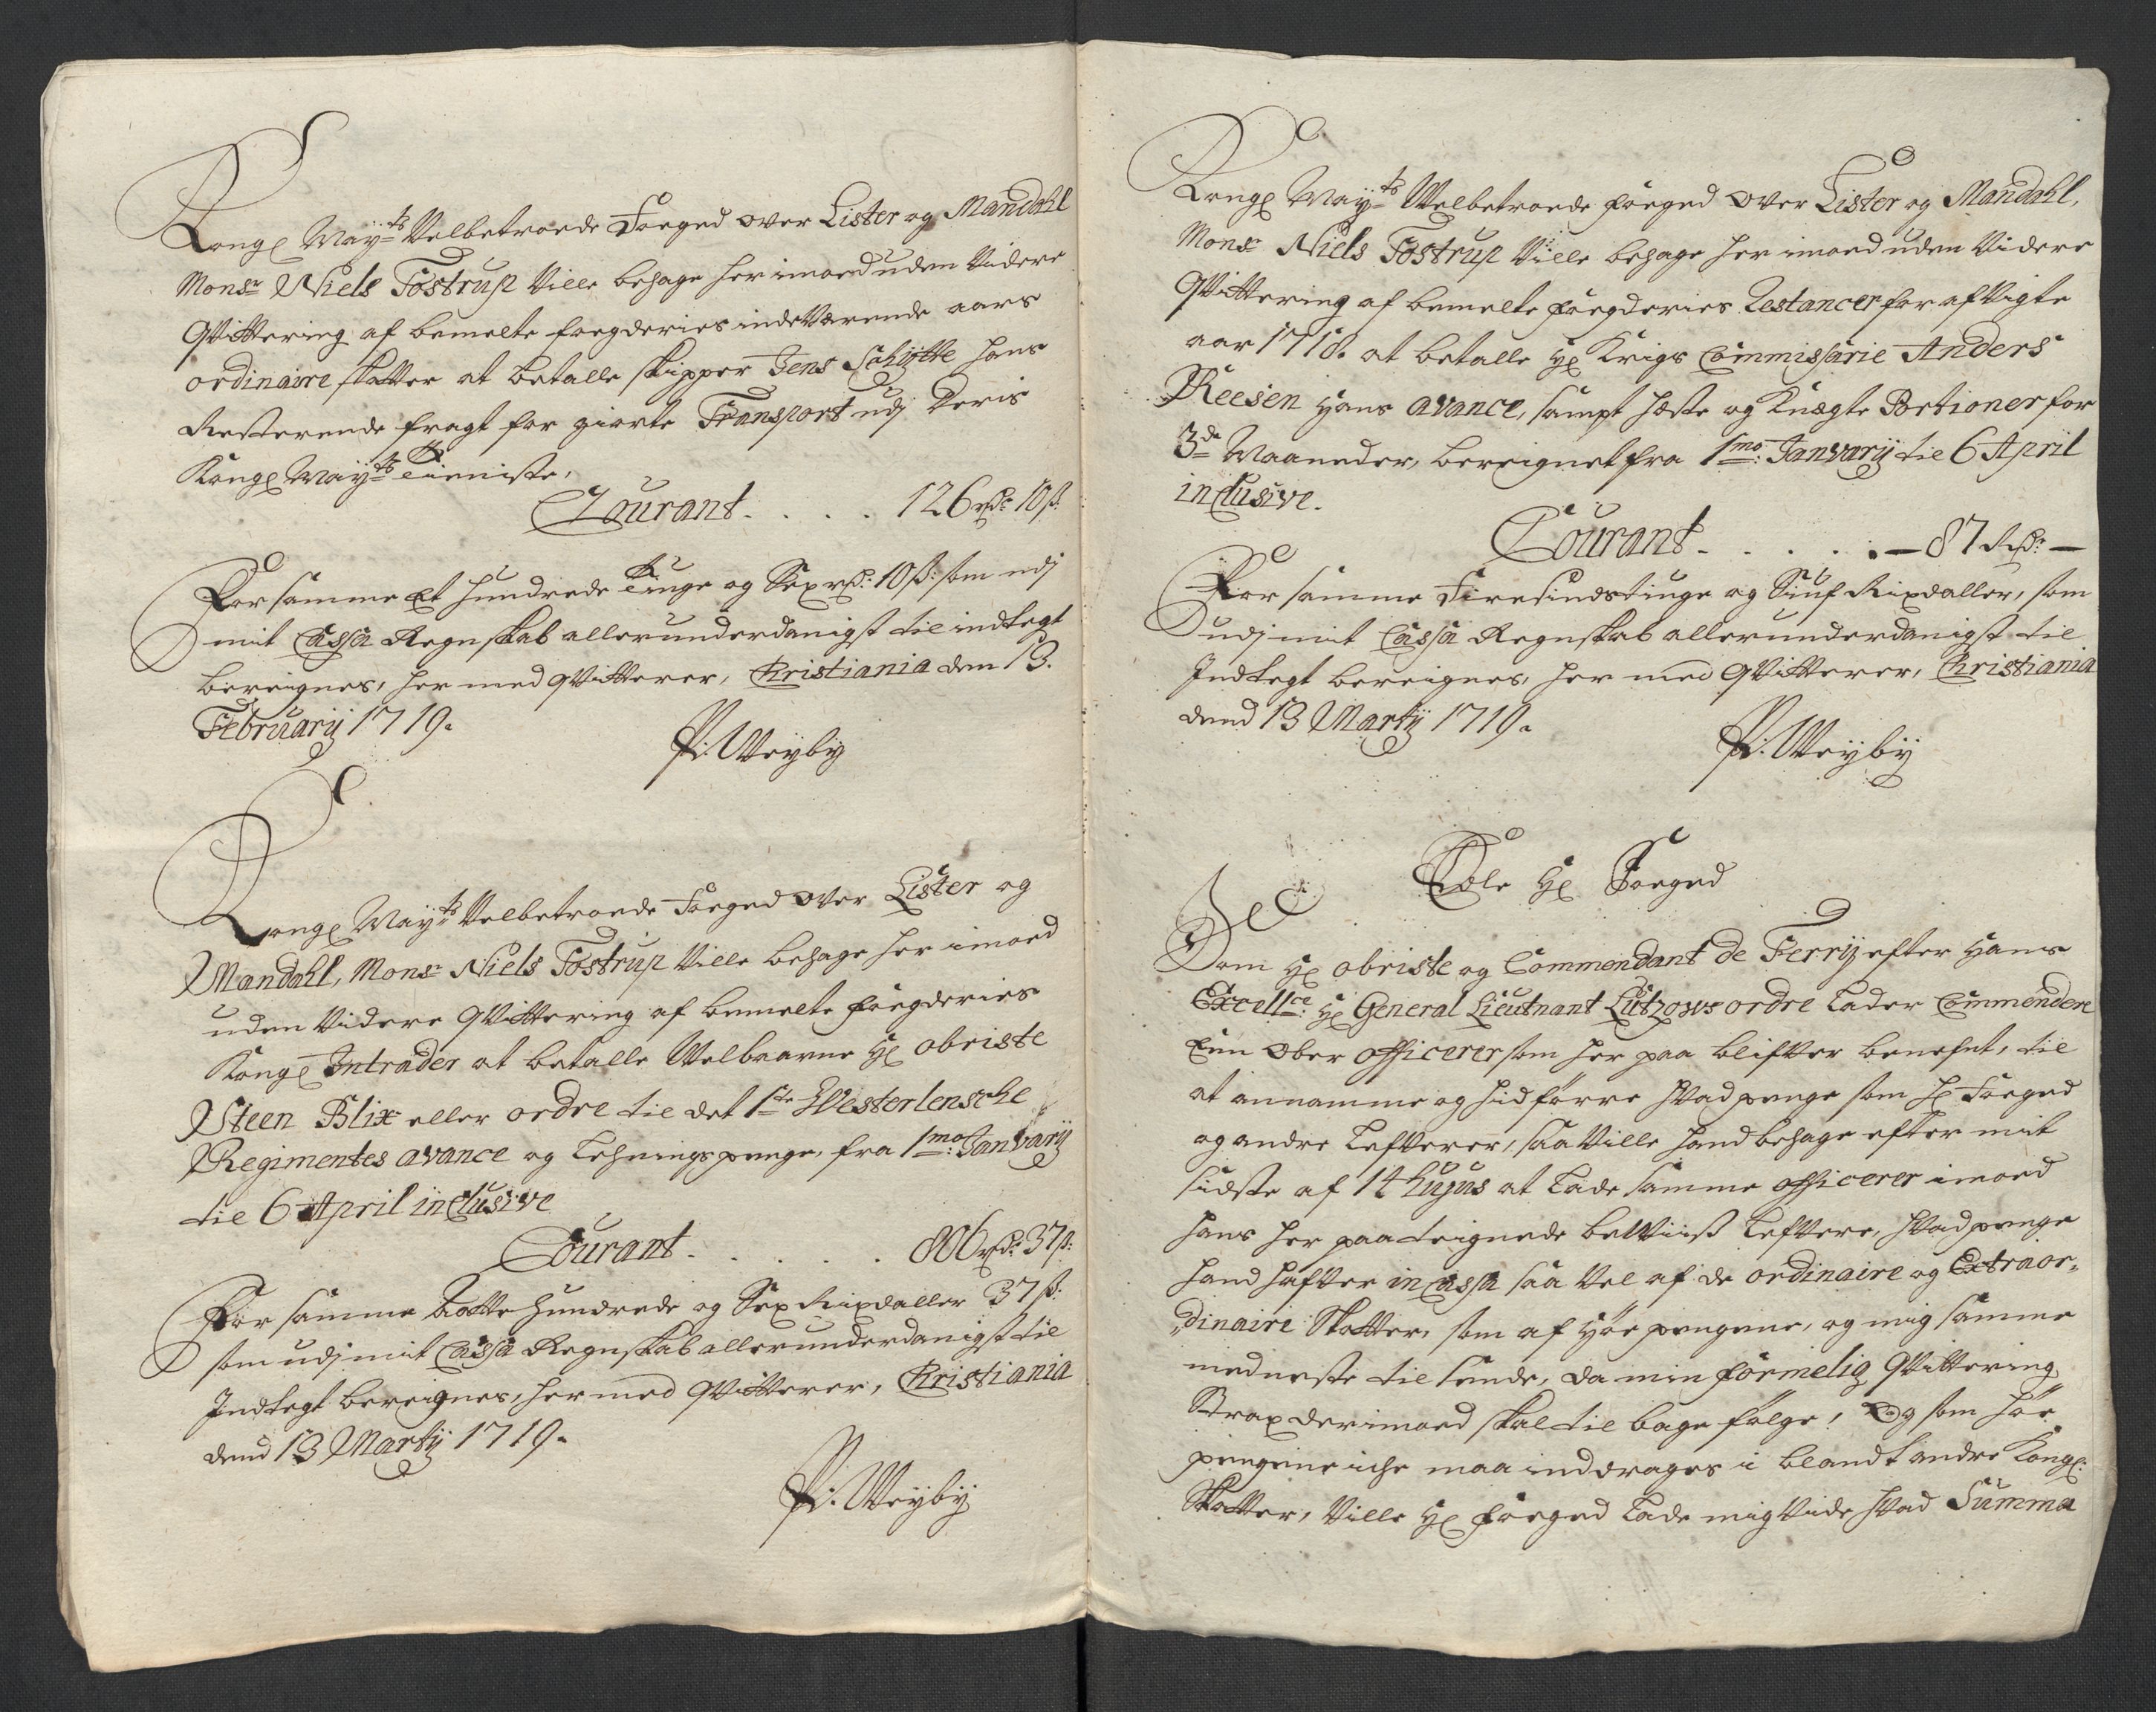 Kongl May:ts Velbetroede Foeged over Lister og Mandahl
Monsr Niels Tostrup Ville behage her imoed uden Videre
qvittering af bemelte fogderies indeværende aars
ordinaire skatter at betalle skipper Jens Schytte hans
Resterende fragt for giorte Transport udj Deris
Kongl May:ts Tieniste,
Courant. . . . 126 rdr: 10 ß:
For samme Et hundrede Tiuge og Sex rdr: 10 ß: som udj
mit Cassa Regnskab allerunderdanigst til indtegt
bereignes, her med qvitterer, Christiania den 13.
Februarij 1719.
P: Weyby
Kongl May:ts Velbetroede Foeged over Lister og
Mandahl, Monsr Niels Tostrup Ville behage her imoed
uden Videre qvittering af bemelte foegderies
Kongl Intrader at betalle Velbaarne Hl obriste
Steen Blix eller ordre til det 1ste Westerlensche
Regimentes avance og Lehnings penge, fra 1mo: Janvarij
til 6 April inclusive
Courant. . . . . 806 rdr: 37 ß:
For samme Aatte hundrede og Sex Rixdaller 37 ß:
som udj mit Cassa Regnskab allerunderdanigst til
Indtegt bereignes, her med qvitterer, Christiania
dend 13 Martij 1719.
P: Weyby
Kongl May:ts Velbetroede foeged over Lister og Mandahl,
Monsr Niels Tostrup Ville behage her imoed uden Videre
qvittering af bemelte foegderies Restancer for afvigte
aar 1718. at betalle Hl Krigs Commissarie Anders
Reesen Hans avance, sampt heste og Knægte Portioner for
3de Maaneder, bereignet fra 1mo: Janvarij til 6 April
inclusive.
Courant. . . . . — 87 Rdr: —
For samme Firesindstiuge og Siuf Rixdaller, som
udj mit Cassa Regnskab allerunderdanigst til
Indtegt bereignes, her med qvitterer, Christiania
dend 13 Martij 1719.
P: Weyby
Ædle Hl Foeged
Som Hl obriste og Commendant de Ferrij efter Hans
Excellce: Hl General Lieutnant Lützows ordre Lader Commendere
Een Ober officerer som her paa blifver benefnt, til
at annamme og hidførre hvad penge som Hl Foeged
og andre Lefverer, saa Ville hand behage efter mit
sidste af 14 hujus at Lade samme officerer imoed
hans her paa teignede beviis Lefvere, hvad penge
hand hafver in Cassa saa Vel af de ordinaire og Extraor-
dinaire Skatter, som af Høe pengene, og mig samme
med neste til sende, da min formelig qvittering
Strax derimoed skal til bage følge! Og som høe
pengene iche maa inddrages i blandt andre Kongl:
Skatter, Ville Hl foeged Lade mig Vide hvad Summa